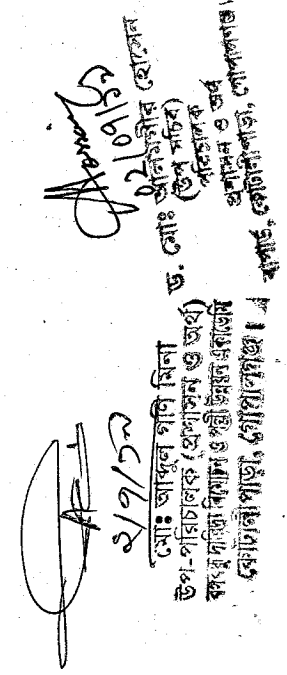 ২/৭/১৯
মোঃ আব্দুল গণি মিনা
উপ-পরিচালক (প্রশাসন ও অর্থ)
বঙ্গবন্ধু দারিদ্র্য বিমোচন ও পল্লী উন্নয়ন একাডেমি
কোটালীপাড়া, গোপালগঞ্জ।
02/07/19
ড. মোঃ আলমগীর হোসেন
(উপ সচিব)
পরিচালক
প্রশাসন ও অর্থ
বাপার্ড, কোটালীপাড়া, গোপালগঞ্জ।